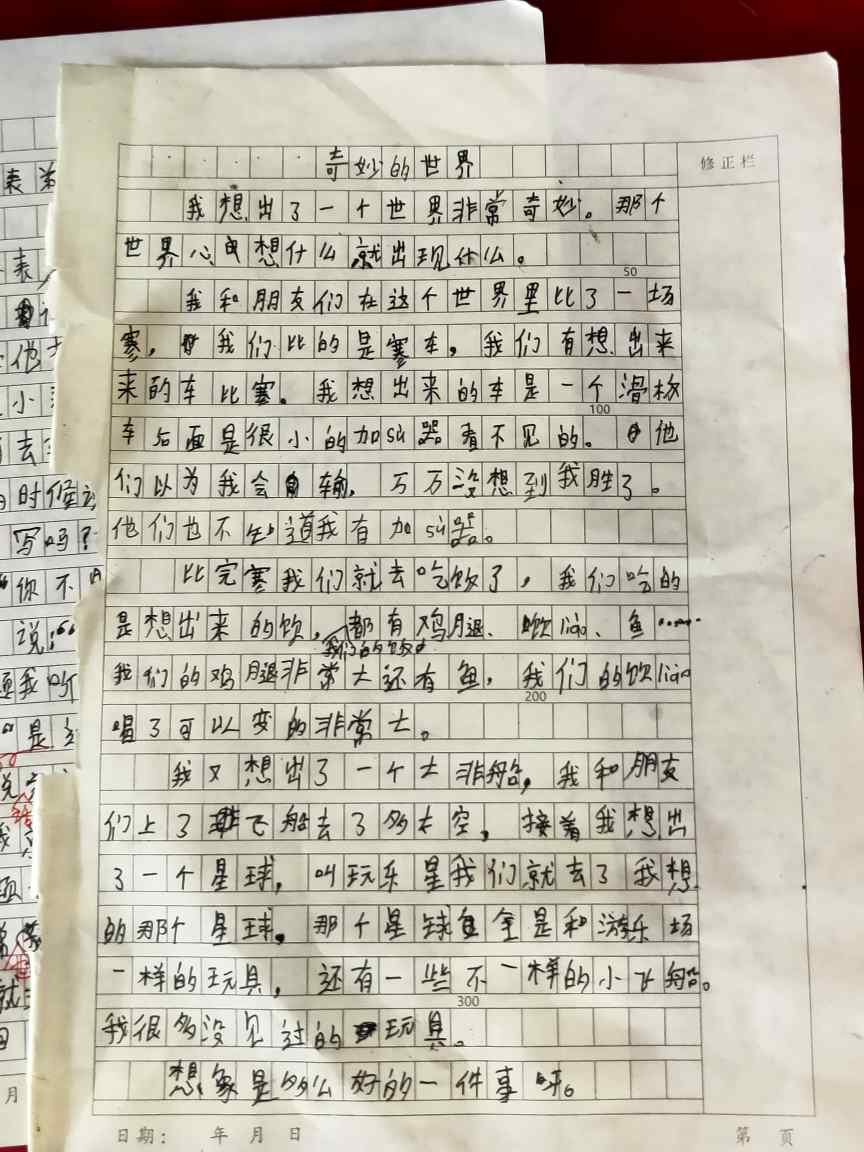 奇妙的世界
修正栏
我想出了一个世界非常奇妙。那个
世界心想什么就出现什么。
50
我和朋友们在这个世界里比了一场
寒，我们比的是寒车，我们有想出来
来的车比寒。我想出来的车是一个滑板
100
车后面是很小的加sù器看不见的。他
们以为我会输，万万没想到我胜了。
他们也不知道我有加sù器。
比完寒我们就去吃饭了，我们吃的
是想出来的饭，都有鸡腿、饮liào、鱼……
我们的饭
我们的鸡腿非常大还有鱼，我们的饮liào
200
唱了可以变的非常大。
我又想出了一个大非船，我和朋友
们上了飞船去了多太空，接着我想出
了一个星球，叫玩乐星我们就去了我想
的那个星球。那个星球全是和游乐场
一样的玩具，还有一些不一样的小飞船。
300
我很多没见过的玩具。
想象是多么好的一件事呀。
日期： 年 月 日
第 页
表
表
他
小
去
时候
写吗？
你不
说：“
是
月